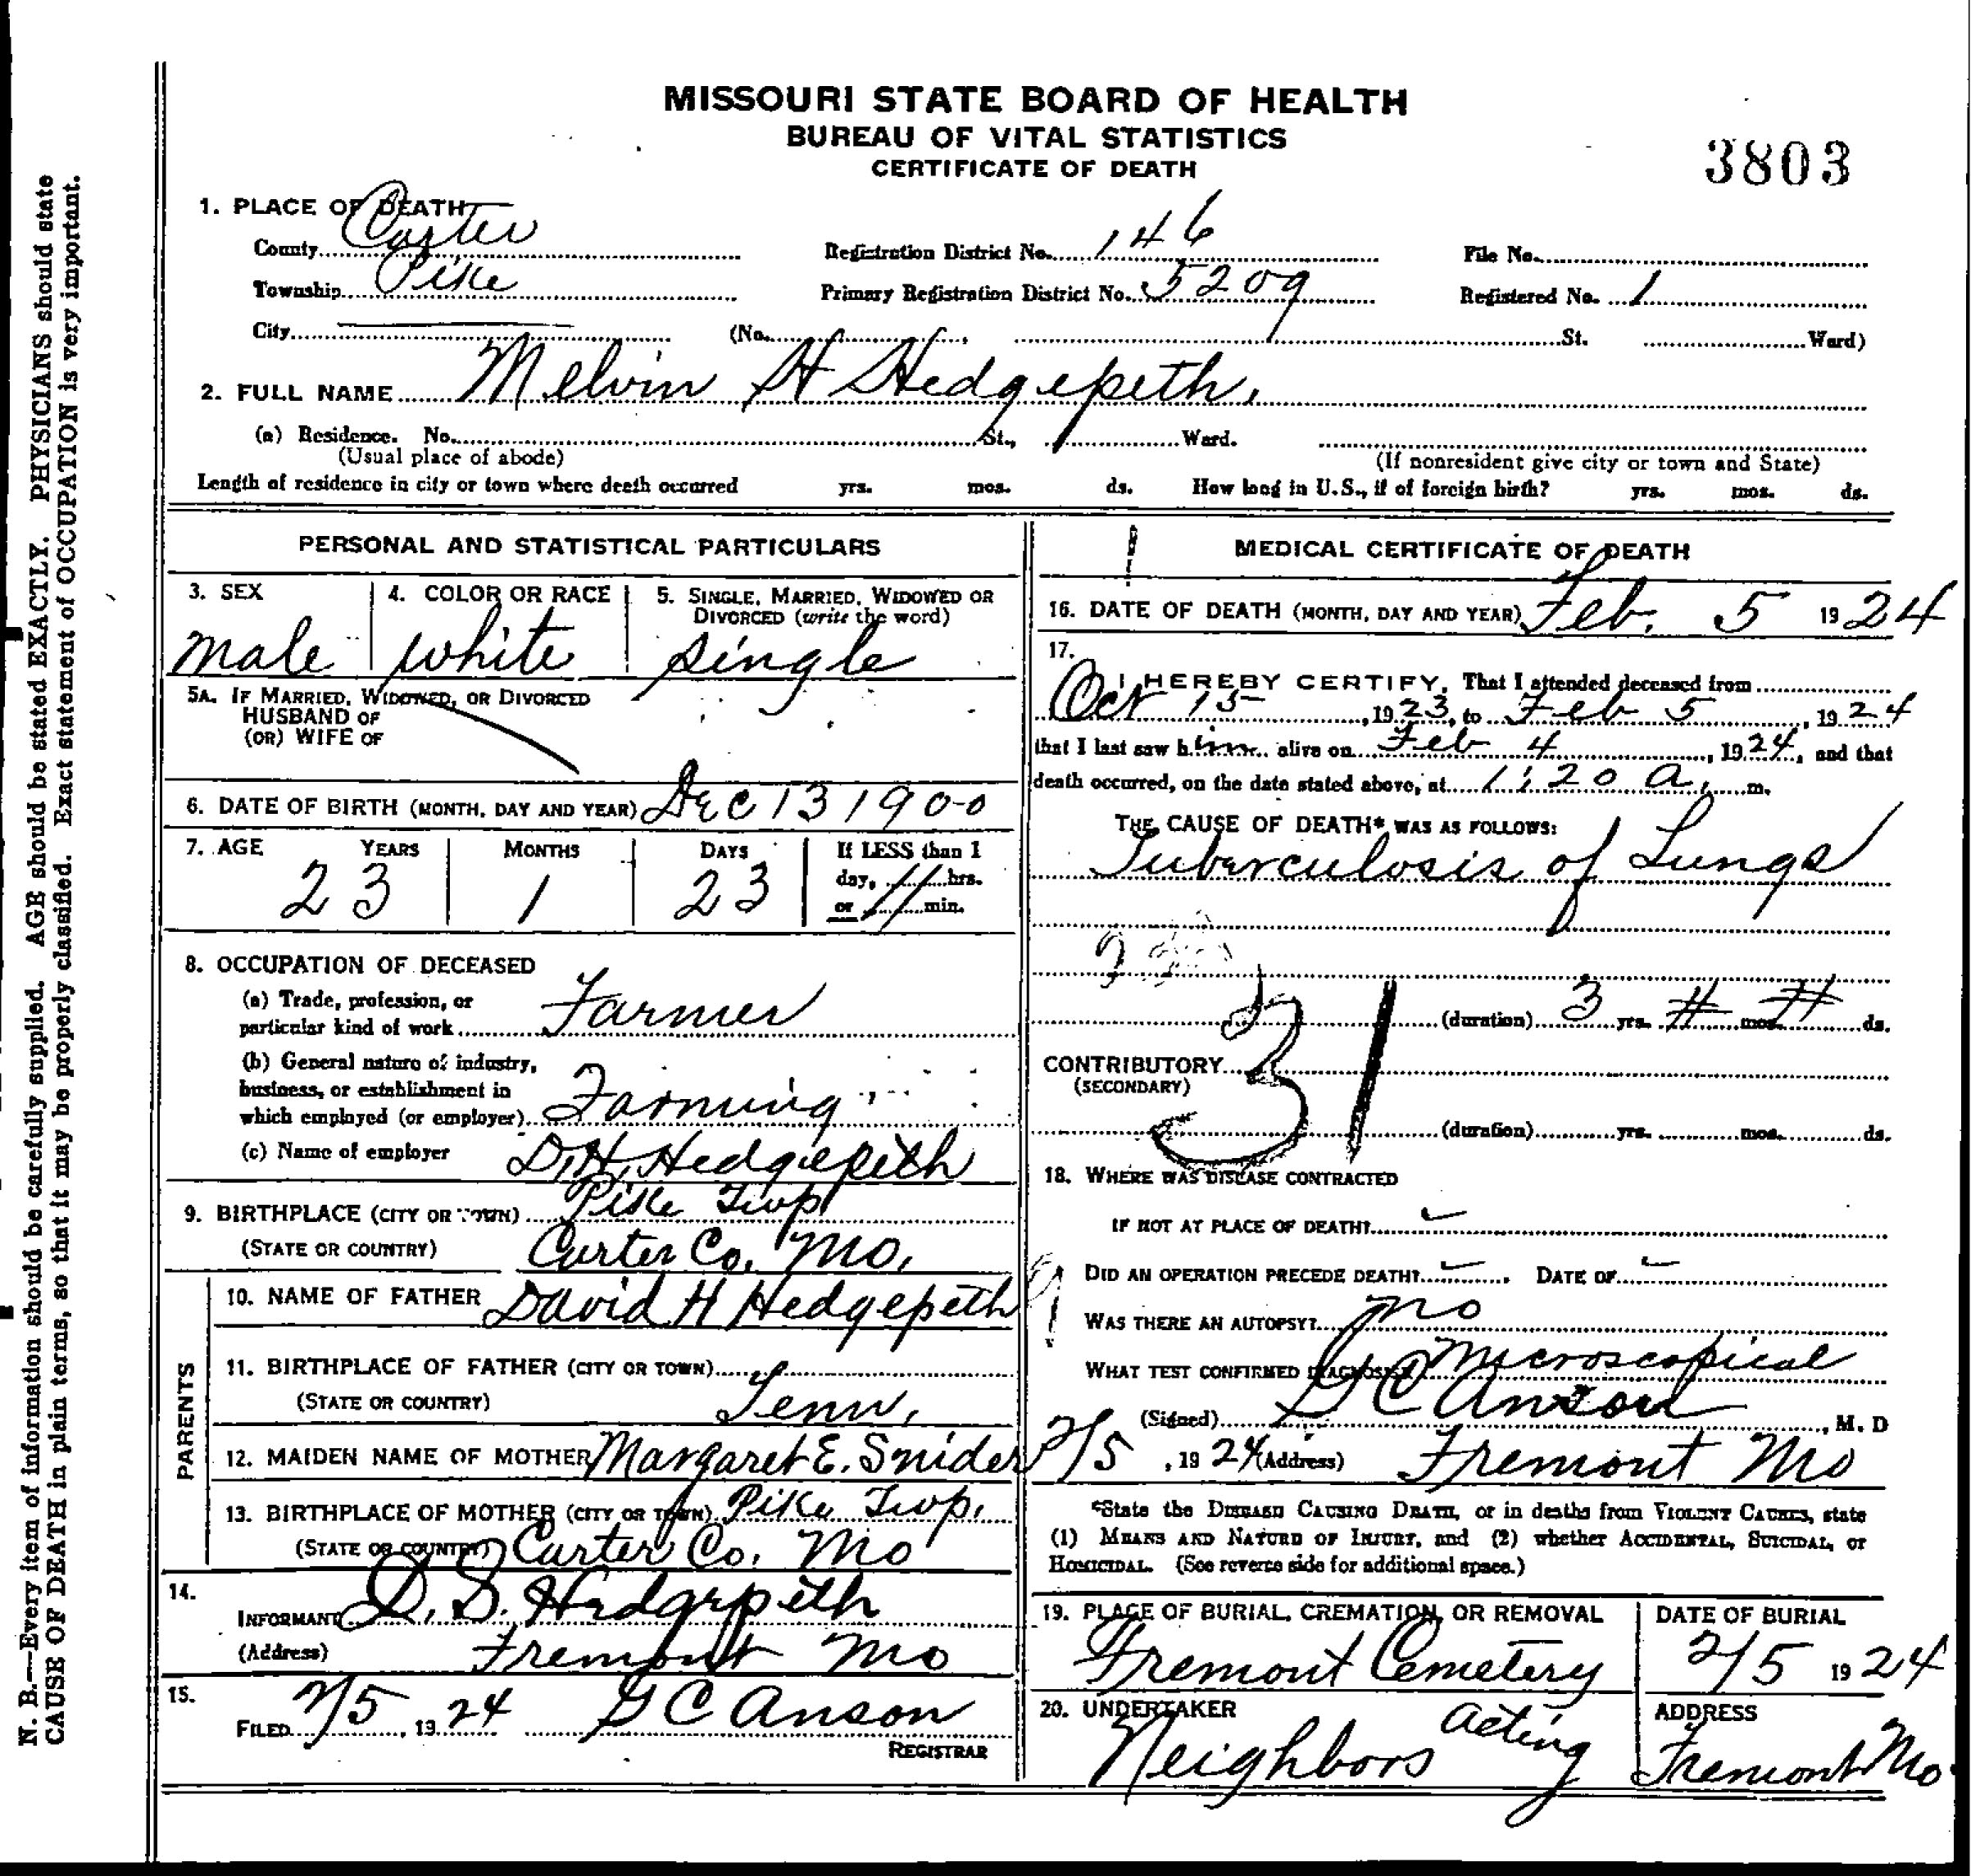 MISSOURI STATE BOARD OF HEALTH
BUREAU OF VITAL STATISTICS
CERTIFICATE OF DEATH
3803
1. PLACE OF DEATH
County Carter Registration District No. 146 File No.
Township Pike Primary Registration District No. 5209 Registered No. 1
City (No. St. Ward)
2. FULL NAME Melvin H Hedgepeth,
(a) Residence. No. St., Ward.
(Usual place of abode) (If nonresident give city or town and State)
Length of residence in city or town where death occurred yrs. mos. ds. How long in U.S., if of foreign birth? yrs. mos. ds.
PERSONAL AND STATISTICAL PARTICULARS
3. SEX 4. COLOR OR RACE 5. SINGLE, MARRIED, WIDOWED OR
DIVORCED (write the word)
male white single
5A. IF MARRIED, WIDOWED, OR DIVORCED
HUSBAND OF
(OR) WIFE OF
6. DATE OF BIRTH (MONTH, DAY AND YEAR) Dec 13 1900
7. AGE YEARS MONTHS DAYS If LESS than 1
day, // hrs.
23 1 23 or // min.
8. OCCUPATION OF DECEASED
(a) Trade, profession, or
particular kind of work Farmer
(b) General nature of industry,
business, or establishment in
which employed (or employer) Farming
(c) Name of employer D. H. Hedgepeth
9. BIRTHPLACE (CITY OR TOWN) Pike Twp
(STATE OR COUNTRY) Carter Co. Mo.
PARENTS
10. NAME OF FATHER David H Hedgepeth
11. BIRTHPLACE OF FATHER (CITY OR TOWN)
(STATE OR COUNTRY) Tenn.
12. MAIDEN NAME OF MOTHER Margaret E. Snider
13. BIRTHPLACE OF MOTHER (CITY OR TOWN) Pike Twp.
(STATE OR COUNTRY) Carter Co. Mo
14.
INFORMANT D. S. Hedgepeth
(Address) Fremont Mo
15.
FILED 2/5, 1924 G C Anson
REGISTRAR
MEDICAL CERTIFICATE OF DEATH
16. DATE OF DEATH (MONTH, DAY AND YEAR) Feb. 5 1924
17.
I HEREBY CERTIFY, That I attended deceased from
Oct 15, 1923, to Feb 5, 1924
that I last saw him alive on Feb 4, 1924, and that
death occurred, on the date stated above, at 1:20 a. m.
THE CAUSE OF DEATH* WAS AS FOLLOWS:
Tuberculosis of Lungs
31
(duration) 3 yrs. # mos. # ds.
CONTRIBUTORY
(SECONDARY)
(duration) yrs. mos. ds.
18. WHERE WAS DISEASE CONTRACTED
IF NOT AT PLACE OF DEATH?
DID AN OPERATION PRECEDE DEATH? DATE OF
WAS THERE AN AUTOPSY? no
WHAT TEST CONFIRMED DIAGNOSIS? Microscopical
(Signed) G C Anson, M. D
2/5, 1924 (Address) Fremont Mo
*State the DISEASE CAUSING DEATH, or in deaths from VIOLENT CAUSES, state
(1) MEANS AND NATURE OF INJURY, and (2) whether ACCIDENTAL, SUICIDAL, or
HOMICIDAL. (See reverse side for additional space.)
19. PLACE OF BURIAL, CREMATION, OR REMOVAL DATE OF BURIAL
Fremont Cemetery 2/5 1924
20. UNDERTAKER ADDRESS
Neighbors acting Fremont Mo.
N. B.—Every item of information should be carefully supplied. AGE should be stated EXACTLY. PHYSICIANS should state
CAUSE OF DEATH in plain terms, so that it may be properly classified. Exact statement of OCCUPATION is very important.